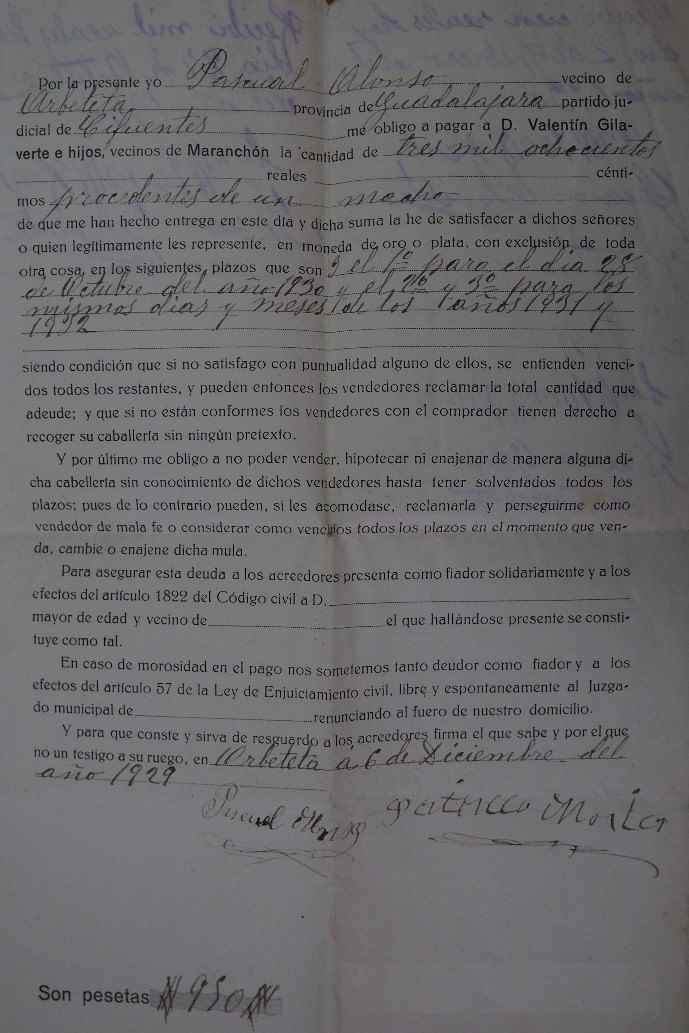 Por la presente yo Pascual Alonso vecino de
Arbeteta provincia de Guadalajara partido ju-
dicial de Cifuentes me obligo a pagar a D. Valentín Gila-
verte e hijos, vecinos de Maranchón la cantidad de tres mil ochocientos
reales cénti-
mos procedentes de un macho
de que me han hecho entrega en este día y dicha suma la he de satisfacer a dichos señores
o quien legítimamente les represente, en moneda de oro o plata, con exclusión de toda
otra cosa, en los siguientes plazos que son 3 el 1º para el dia 28
de Octubre del año 1930 y el 2º y 3º para los
mismos dias y meses de los años 1931 y
1932
siendo condición que si no satisfago con puntualidad alguno de ellos, se entienden venci-
dos todos los restantes, y pueden entonces los vendedores reclamar la total cantidad que
adeude; y que si no están conformes los vendedores con el comprador tienen derecho a
recoger su caballería sin ningún pretexto.
Y por último me obligo a no poder vender, hipotecar ni enajenar de manera alguna di-
cha cabellería sin conocimiento de dichos vendedores hasta tener solventados todos los
plazos; pues de lo contrario pueden, si les acomodase, reclamarla y perseguirme como
vendedor de mala fe o considerar como vencidos todos los plazos en el momento que ven-
da, cambie o enajene dicha mula.
Para asegurar esta deuda a los acreedores presenta como fiador solidariamente y a los
efectos del artículo 1822 del Código civil a D.
mayor de edad y vecino de el que hallándose presente se consti-
tuye como tal.
En caso de morosidad en el pago nos sometemos tanto deudor como fiador y a los
efectos del artículo 57 de la Ley de Enjuiciamiento civil, libre y espontaneamente al Juzga-
do municipal de renunciando al fuero de nuestro domicilio.
Y para que conste y sirva de resguardo a los acreedores firma el que sabe y por el que
no un testigo a su ruego, en Arbeteta a 6 de Diciembre del
año 1929
Pascual Alonso
Son pesetas 950